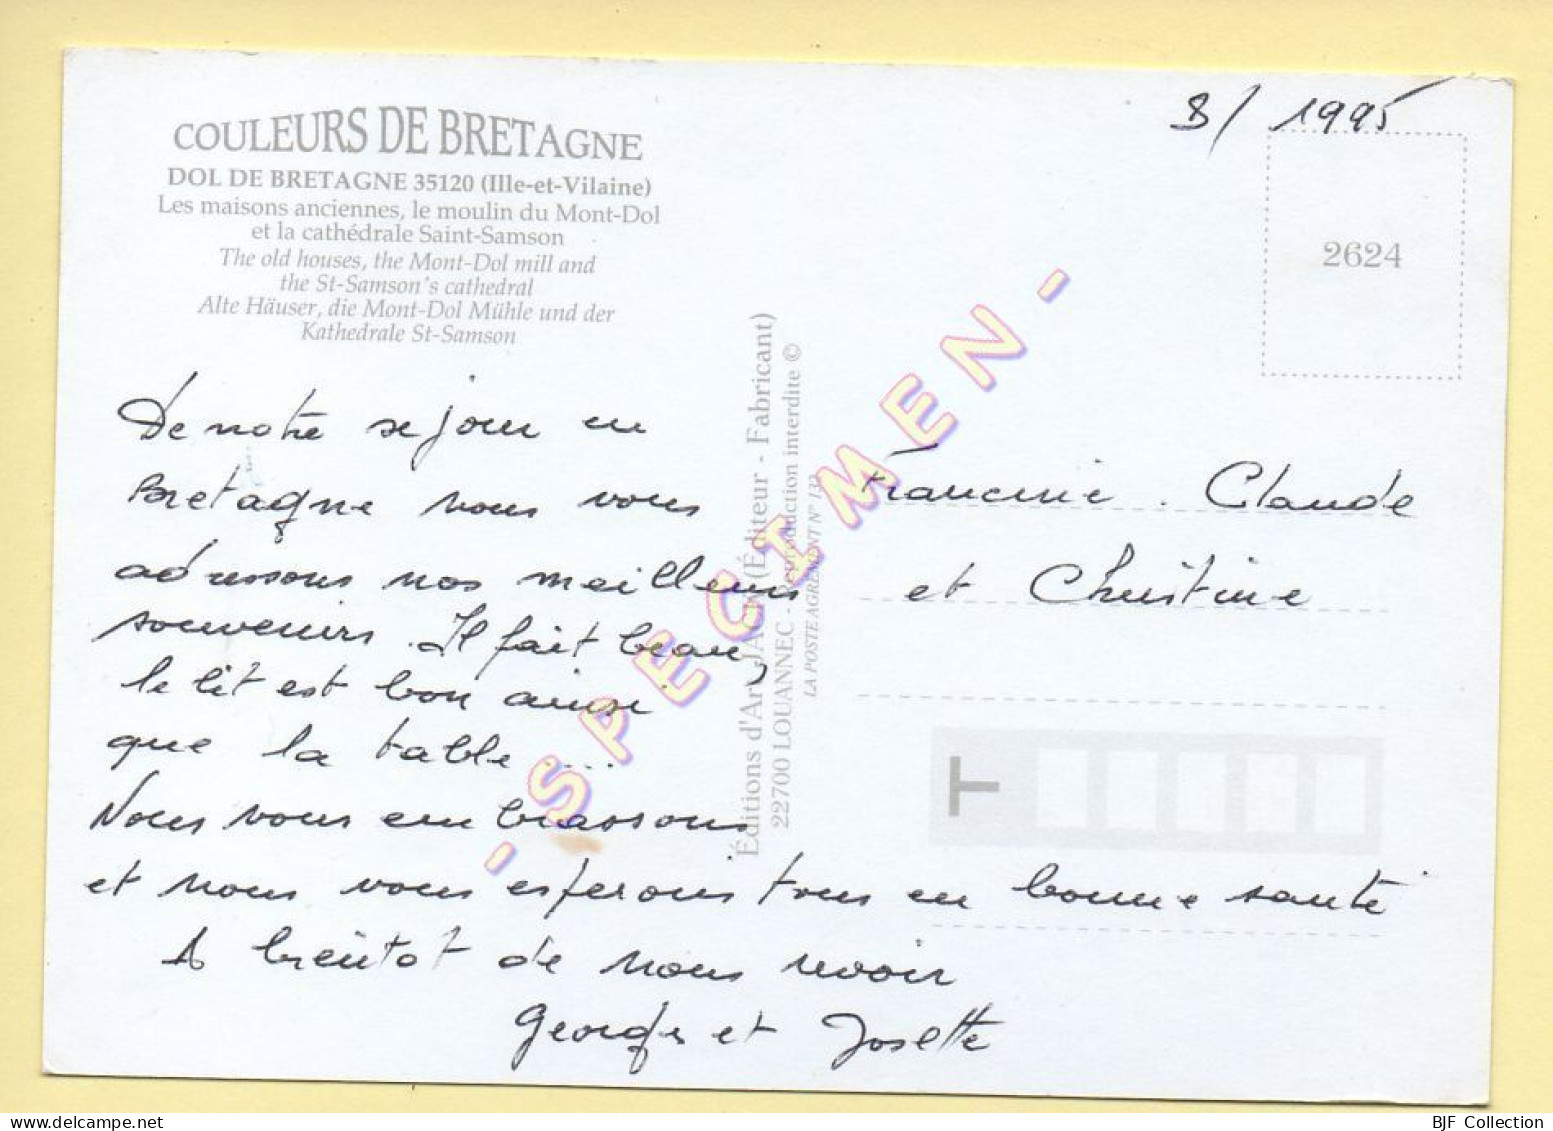 8/1995
COULEURS DE BRETAGNE
DOL DE BRETAGNE 35120 (Ille-et-Vilaine)
Les maisons anciennes, le moulin du Mont-Dol
et la cathédrale Saint-Samson
The old houses, the Mont-Dol mill and
the St-Samson's cathedral
Alte Häuser, die Mont-Dol Mühle und der
Kathedrale St-Samson
2624
De notre séjour en
Bretagne nous vous
adressons nos meilleurs
souvenirs. Il fait beau,
le lit est bon ainsi
que la table ....
Nous vous embrassons
et nous vous esperons tous en bonne santé
A bientôt de nous revoir
Georges et Josette
Éditions d'Art JACK (Éditeur - Fabricant)
22700 LOUANNEC - Reproduction interdite ©
LA POSTE AGREMENT N° 132
- SPECIMEN -
Francine. Claude
et Christine
T
BJF Collection